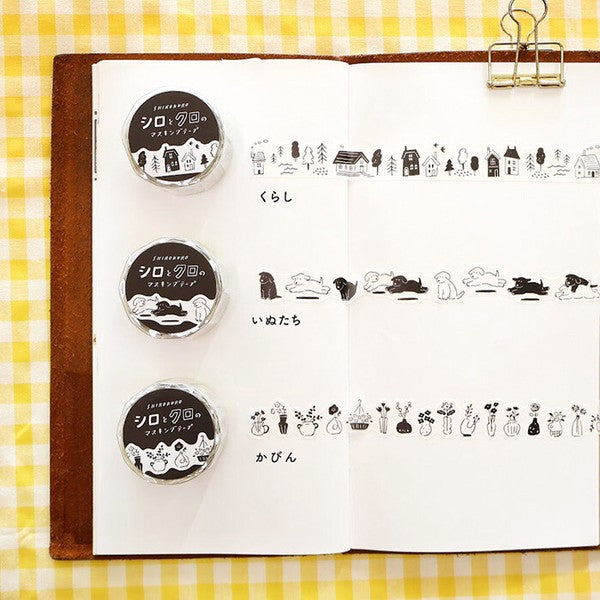 SHIROKURO
シロとクロの
マスキングテープ
くらし
SHIROKURO
シロとクロの
マスキングテープ
いぬたち
SHIROKURO
シロとクロの
マスキングテープ
かびん